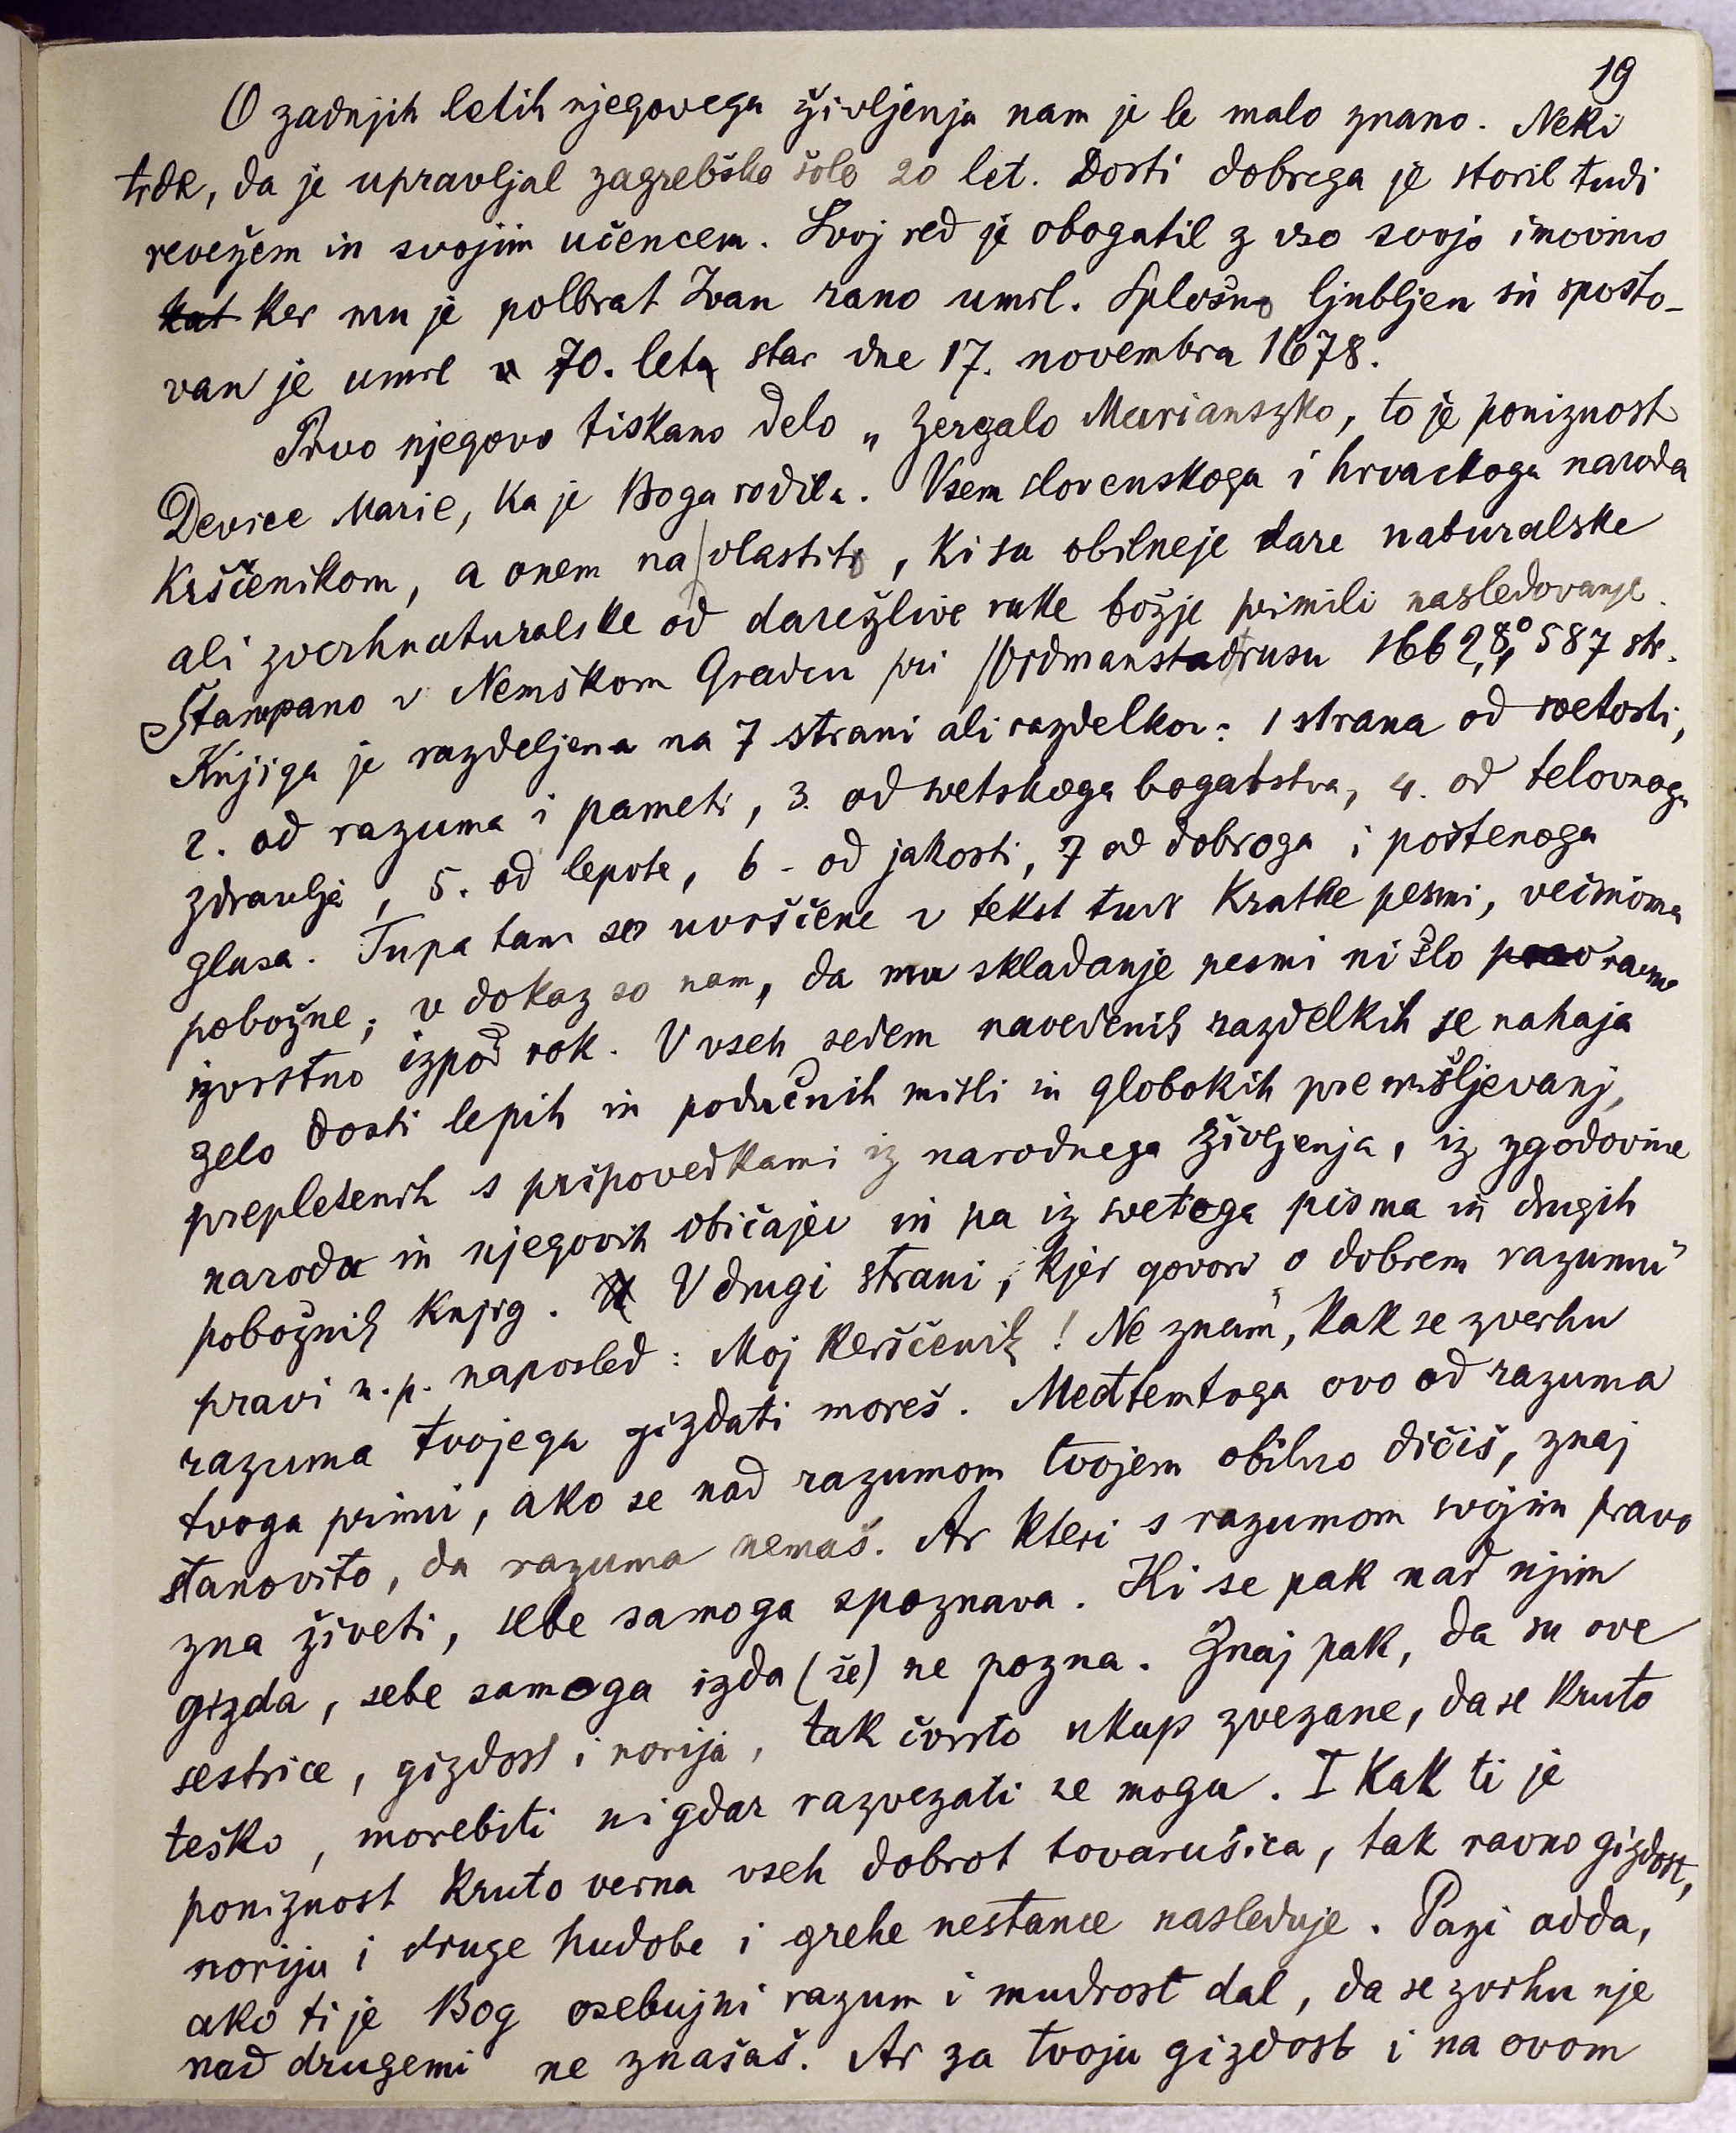 19
O zadnjih letih njegovega življenja nam je le malo znano. Neki
trde, da je upravljal zagrebško šolo 20 let. Dosti dobrega je storil tudi
revežem in svojim učencem. Svoj red je obogatil z vso svojo imovino
kat ker mu je polbrat Ivan rano umrl. Splošno ljubljen in spošto-
van je umrl v 70. leta star dne 17. novembra 1678.
Prvo njegovo tiskano delo „Zergalo Marianszko, to je poniznost
Device Marie, ka je Boga rodila. Vsem slovenskoga i hrvackoga naroda
Krščenikom, a onem na vlastito, ki su obilneje dare naturalske
ali zverhnaturalske od darežlive ruke božje primili nasledovanje.
Štampano v Nemškom Gradcu pri 1662, 8° 587 str.
Knjiga je razdeljena na 7 strani ali razdelkov: 1 strana od svetosti,
2. od razuma i pameti, 3. od svetskoga bogatstva, 4. od telovnoga
zdravlja, 5. od lepote, 6 - od jakosti, 7 od dobroga i poštenoga
glasa. Tupatam so uvrščene v tekst tudi kratke pesmi, večinoma
pobožne; v dokaz so nam, da mu skladanje pesmi ni šlo prav ravno
izvrstno izpod rok. V vseh sedem navedenih razdelkih se nahaja
zelo dosti lepih in podučnih misli in globokih premišljevanj,
prepletenih s pripovedkami iz narodnega življenja, iz zgodovine
naroda in njegovih običajev in pa iz svetega pisma in drugih
pobožnih knjig. V drugi strani, kjer govori „o dobrem razumu"
pravi n. p. naposled: Moj kerščenik! Ne znam, kak se zverhu
razuma tvojega gizdati moreš. Medtemtoga ovo od razuma
tvoga primi, ako se nad razumom tvojem obilno dičiš, znaj
stanovito, da razuma nemaš. Ar kteri s razumom svojim pravo
zna živeti, sebe samoga spoznava. Ki se pak nad njim
gizda, sebe samoga izda (še) ne pozna. Znaj pak, da su ove
sestrice, gizdost i norija, tak čvrsto ukup zvezane, da se kruto
teško, morebiti nigdar razvezati ne mogu. I kak ti je
poniznost kruto verna vseh dobrot tovarušica, tak ravno gizdost,
noriju i druge hudobe i grehe nestance nasleduje. Pazi adda,
ako ti je Bog osebujni razum i mudrost dal, da se zvrhu nje
nad drugemi ne znašaš. Ar za tvoju gizdost i na ovom